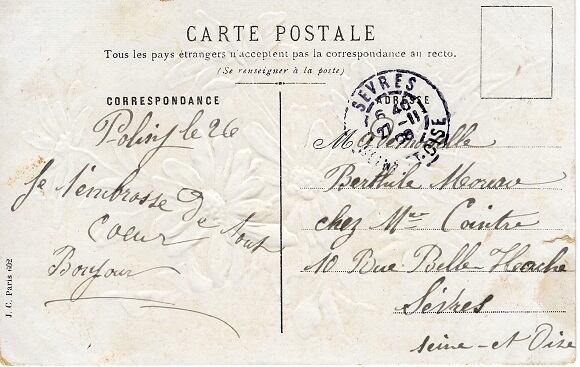 CARTE POSTALE
Tous les pays étrangers n'acceptent pas la correspondance au recto.
(Se renseigner à la poste)
CORRESPONDANCE
ADRESSE
SEVRES
OISE
le 26
Je t'embrosse de tout
Coeur
Bonjour
Mademoiselle
Berthile Moreau
chez Mme Cointre
10 Rue Belle Hache
Sèvres
seine-et Oise
J. C. Paris 602